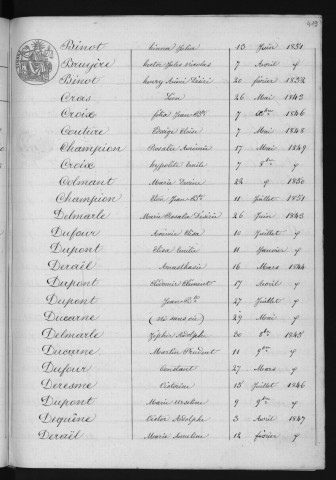 413
Brinot Julia 13 Juin 1851
Bruyère Victor Jules Nicolas 7 Avril 4
Binot Henry Aimé Désiré 20 février 1852
Cras Léon 26 Mai 1843
Croix Julia Jean Bte 7 Xbre 1846
Couture Edvige Elisa 7 Mai 1848
Champion Rosalie Arsénie 17 Mai 1849
Croix Hypolite Emile 7 8bre 4
Colmant Marie 22 4 1850
Champion Jean Bte 11 Juillet 1851
Delmarle Marie Rosalie Désirée 26 Juin 1843
Dufour Elisa 10 Juillet 4
Dupont Elisa Emilie 11 Janvier 4
Deraël Anasthasie 16 Mars 1844
Dupont Clément 17 Avril 4
Dupont Jean Bte 27 Juillet 4
Ducarne (né sans vie) 29 Mai 4
Delmarle Zéphir Adolphe 30 8bre 1845
Ducarne Martin Prudent 11 9bre 4
Dufour Constant 27 Mars 4
Deresne 15 Juillet 1846
Dupont Marie 9 9bre 4
Dequêne Victor Adolphe 3 Avril 1847
Deraël Marie 12 février 4